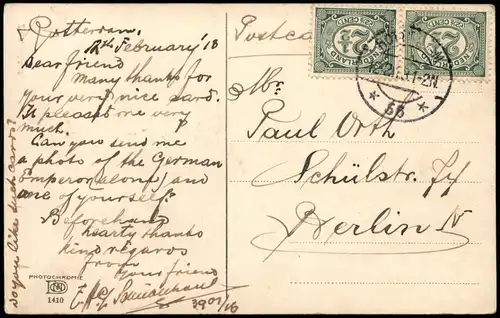 Rotterdam,
12th February '13
Dear friend
Many thanks for
your very nice card.
It pleased me very
much.
Can you send me
a photo of the German
Emperor (alone) and
one of yourself.
Beforehand
hearty thanks
kind regards
from
your friend
Do you like such cards?
PHOTOCHROMIE
1410
Postcard
Mr.
Paul Orth
Schülstr.
Berlin N
NEDERLAND
2½ CENT
NEDERLAND
2½ CENT
1-2N
* 68 *